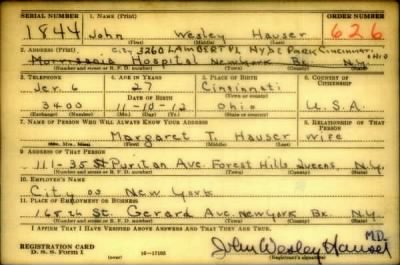 SERIAL NUMBER 1. NAME (Print) ORDER NUMBER
1844 John Wesley Hauser 626
2. ADDRESS (Print) City 3260 LAMBERT PL HYDE PARK Cincinnati Ohio
Morrisania Hospital New York Bx. N.Y.
(Number and street or R. F. D. number) (Town) (County) (State)
3. TELEPHONE 4. AGE IN YEARS 5. PLACE OF BIRTH 6. COUNTRY OF CITIZENSHIP
Jer. 6 27 Cincinnati
DATE OF BIRTH
3400 11-10-12 Ohio U.S.A.
7. NAME OF PERSON WHO WILL ALWAYS KNOW YOUR ADDRESS 8. RELATIONSHIP OF THAT PERSON
Margaret T. Hauser wife
9. ADDRESS OF THAT PERSON
111-35 St Puritan Ave. Forest Hills Queens, N.Y.
(Number and street or R. F. D. number) (Town) (County) (State)
10. EMPLOYER'S NAME
City of New York
11. PLACE OF EMPLOYMENT OR BUSINESS
168th St. Gerard Ave. New York Bx. N.Y.
(Number and street or R. F. D. number) (Town) (County) (State)
I AFFIRM THAT I HAVE VERIFIED ABOVE ANSWERS AND THAT THEY ARE TRUE.
REGISTRATION CARD
D. S. S. Form 1 (over) 16-17105 John Wesley Hauser M.D.
(Registrant's signature)